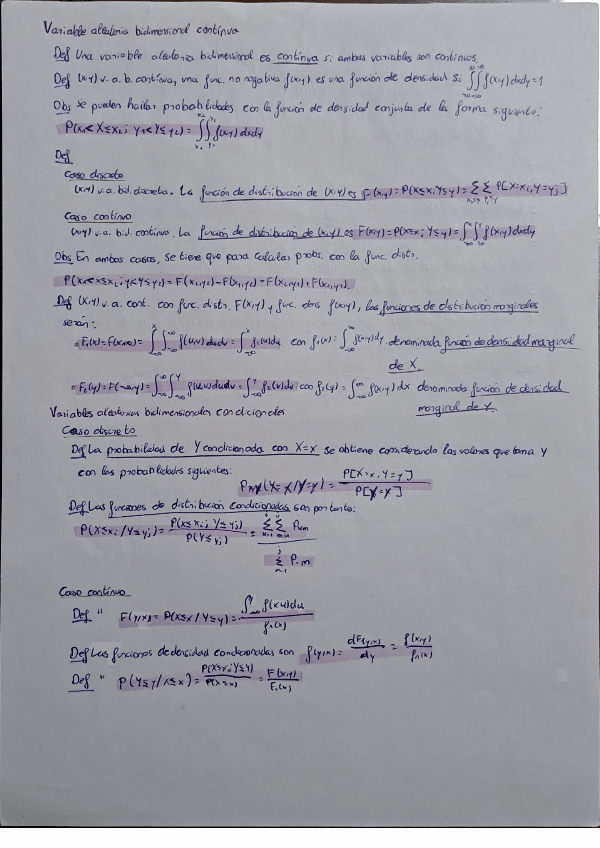 Variable aleatoria bidimensional continua
Def Una variable aleatoria bidimensional es continua si ambas variables son continuas.
Def (X,Y) v.a.b. continua, una func. no negativa f(x,y) es una función de densidad si ∫_{-∞}^{∞}∫_{-∞}^{∞} f(x,y)dxdy=1
Obs Se pueden hallar probabilidades con la función de densidad conjunta de la forma siguiente:
P(x₁<X≤x₂; y₁<Y≤y₂)=∫_{x₁}^{x₂}∫_{y₁}^{y₂} f(x,y)dxdy
Def
Caso discreto
(X,Y) v.a. bid. discreta. La función de distribución de (X,Y) es F(x,y)=P(X≤x,Y≤y)=Σ Σ P[X=xᵢ,Y=yⱼ]
Caso continuo
(X,Y) v.a. bid. continua. La función de distribución de (X,Y) es F(x,y)=P(X≤x; Y≤y)=∫_{-∞}^{x}∫_{-∞}^{y} f(x,y)dxdy
Obs En ambos casos, se tiene que para calcular probs. con la func. distr.
P(x₁<X≤x₂; y₁<Y≤y₂)=F(x₂,y₂)-F(x₁,y₂)-F(x₂,y₁)+F(x₁,y₁).
Def (X,Y) v.a. cont. con func. distr. F(x,y) y func. dens f(x,y), las funciones de distribución marginales
serán:
F₁(x)=F(x,∞)=∫_{-∞}^{x}∫_{-∞}^{∞} f(u,v)dudv=∫_{-∞}^{x} f₁(u)du con f₁(x)=∫_{-∞}^{∞} f(x,y)dy denominada función de densidad marginal
de X.
F₂(y)=F(∞,y)=∫_{-∞}^{∞}∫_{-∞}^{y} f(u,v)dudv=∫_{-∞}^{y} f₂(v)dv con f₂(y)=∫_{-∞}^{∞} f(x,y)dx denominada función de densidad
marginal de Y.
Variables aleatorias bidimensionales condicionales
Caso discreto
Def La probabilidad de Y condicionada con X=x se obtiene considerando los valores que toma Y
con las probabilidades siguientes:
(X=x/Y=y)=P[X=x,Y=y]/P[Y=y]
Def Las funciones de distribución condicionadas son por tanto:
P(X≤xᵢ/Y≤yⱼ)=P(X≤xᵢ; Y≤yⱼ)/P(Y≤yⱼ)=
Caso continuo
Def " F(y/x)=P(X≤x/Y≤y)=∫ f(x,u)du/f₁(x)
Def Las funciones de densidad condicionadas son f(y/x)=dF(y/x)/dy=f(x,y)/f₁(x)
Def " P(Y≤y/X≤x)=P(X≤x;Y≤y)/P(X≤x)=F(x,y)/F₁(x)